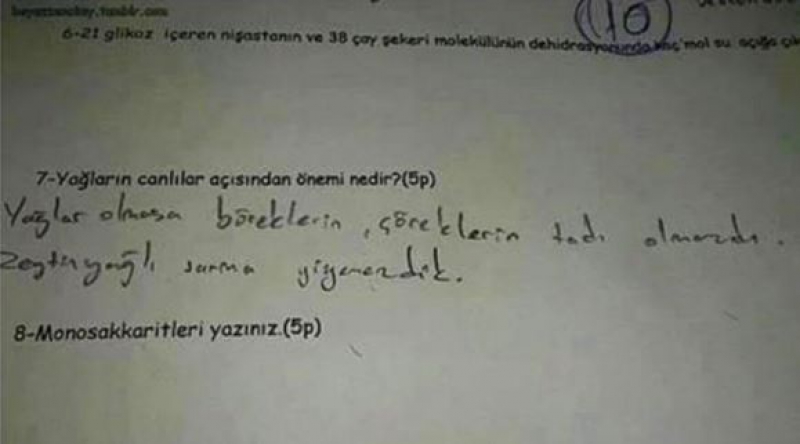 10
6-21 glikoz içeren nişastanın ve 38 çay şekeri molekülünün dehidrasyonunda kaç mol su açığa çık
7-Yağların canlılar açısından önemi nedir?(5p)
Yağlar olmasa böreklerin, çöreklerin tadı olmazdı.
Zeytinyağlı sarma yiyemezdik.
8-Monosakkaritleri yazınız.(5p)